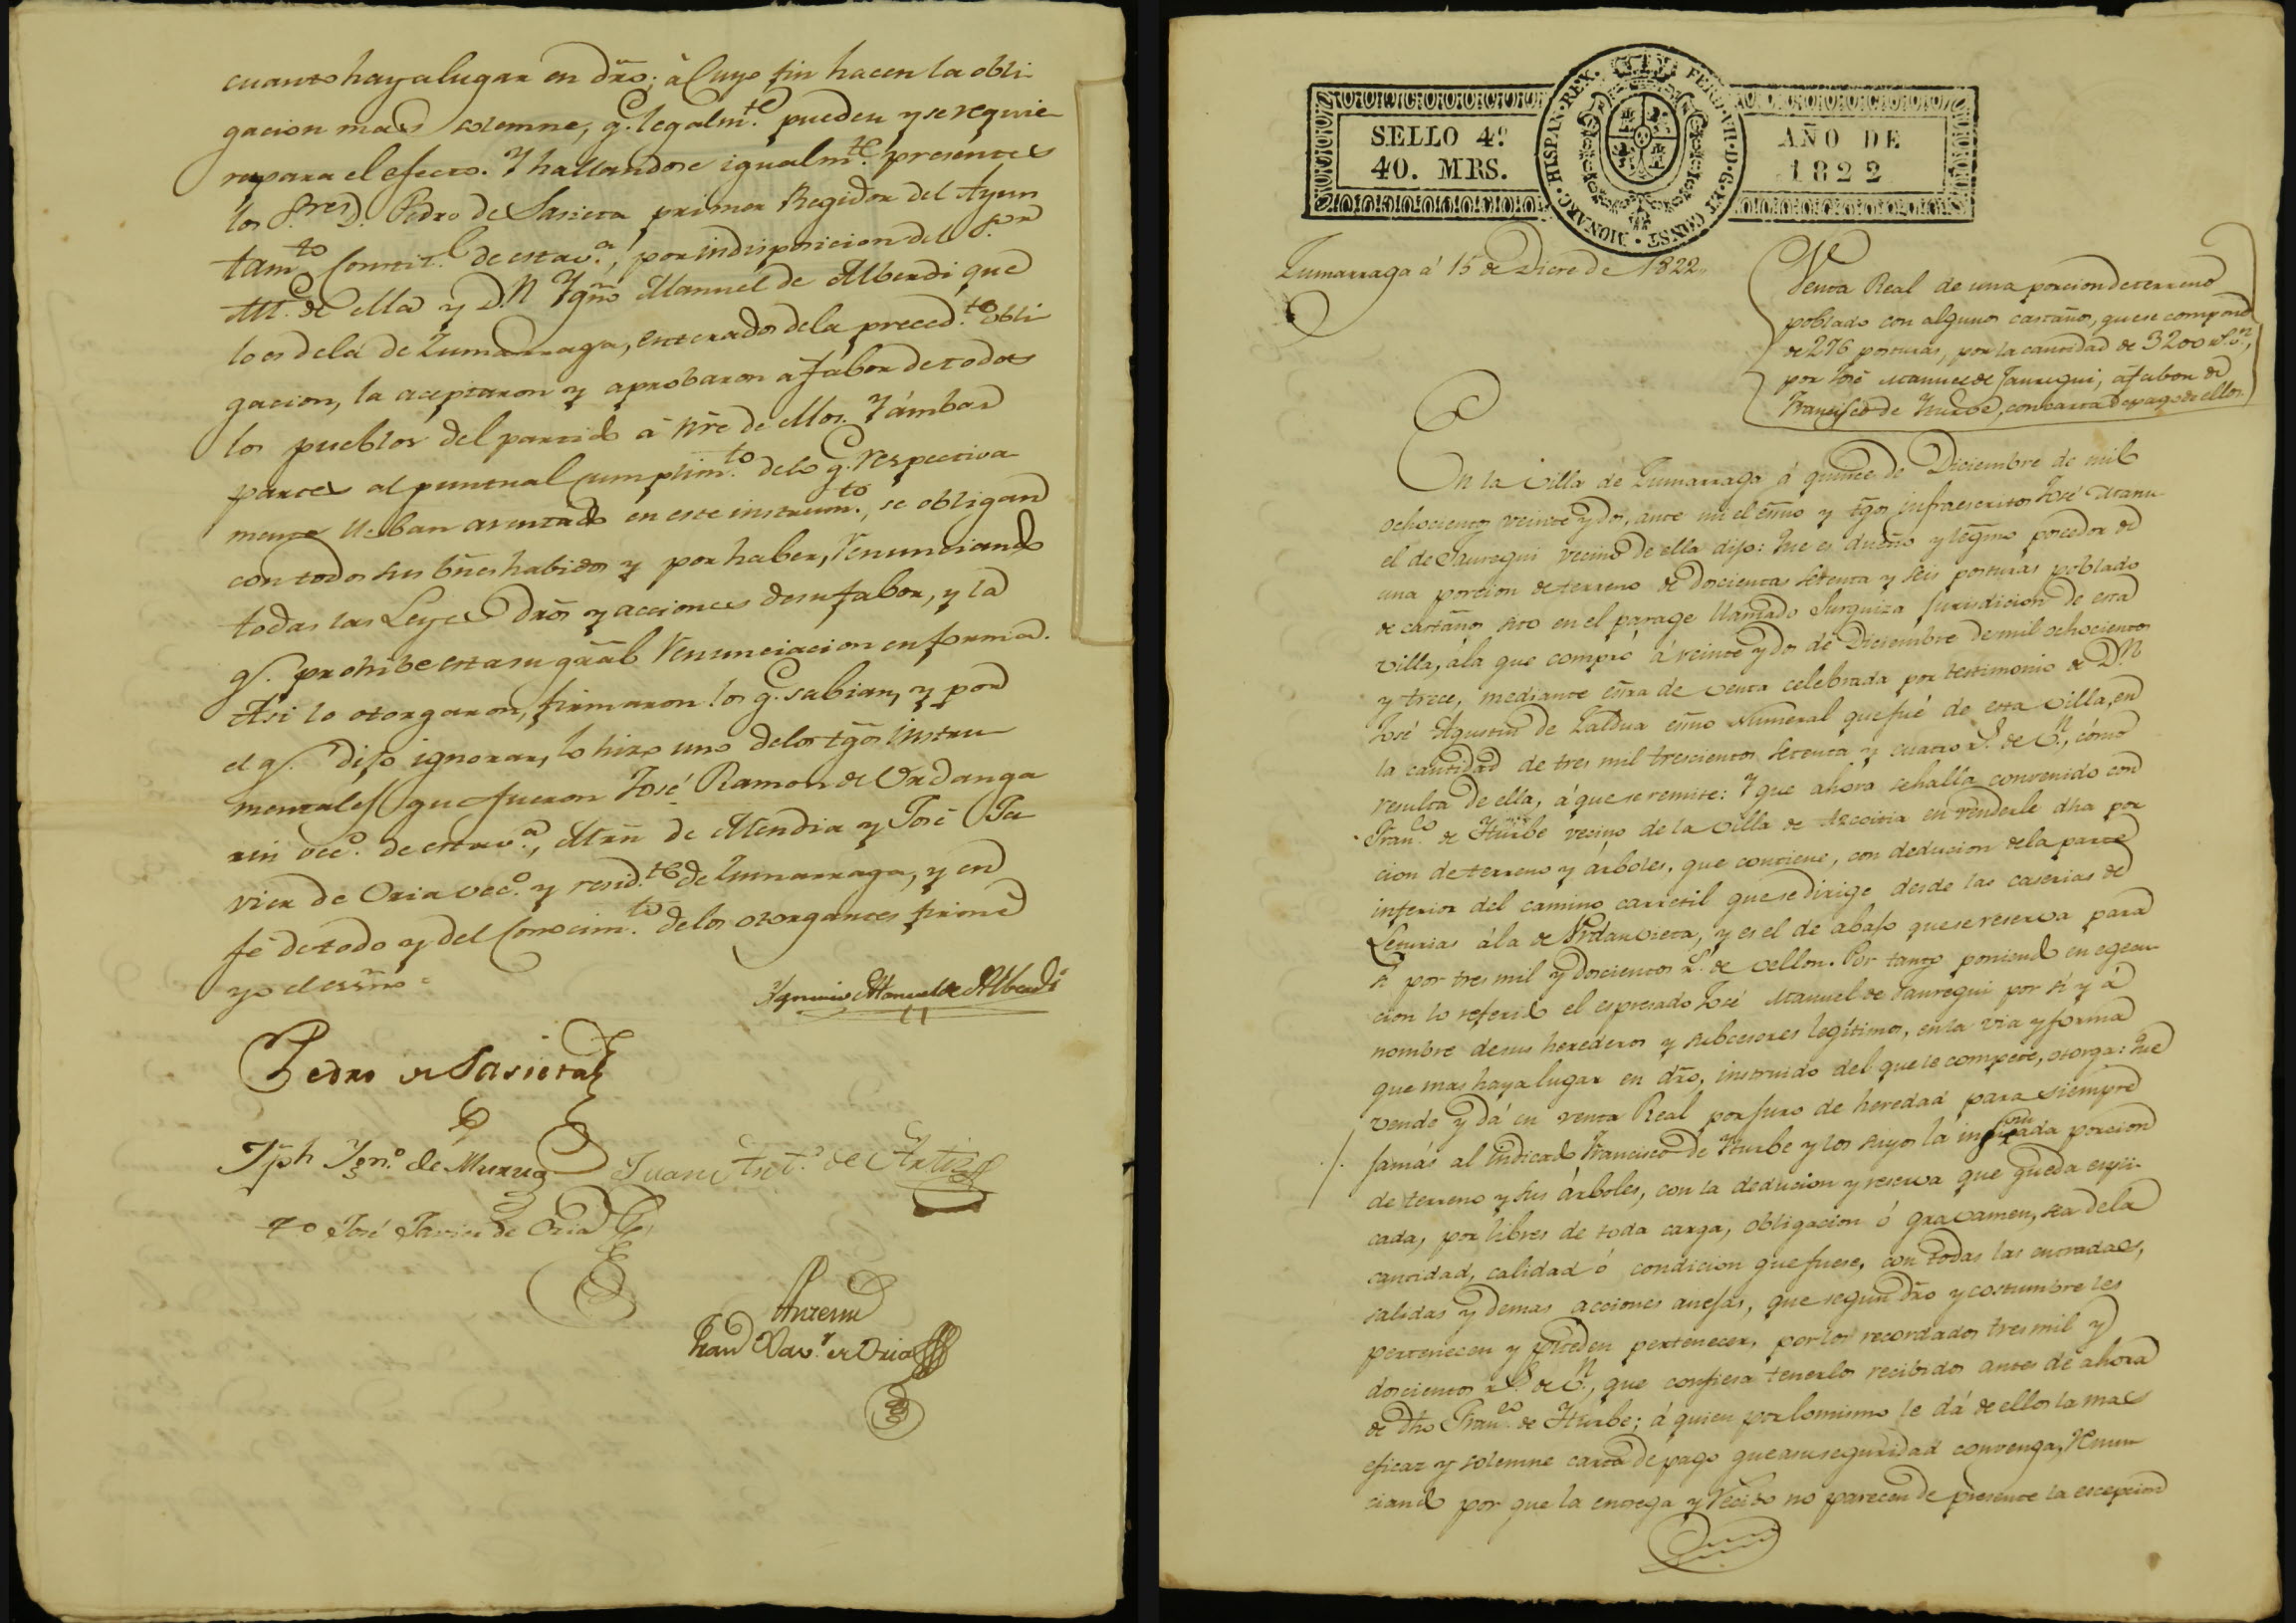 cuanto haya lugar en dro; à cuyo fin hacen la obli-
gacion mas solemne, q. legalmte. pueden y se requie-
ra para el efecto. Y hallandose igualmte. presentes
los Sres. D. Pedro de Sasieta primer Regidor del Ayun
tamto. Constitl. de esta va., por indisposicion del Sor.
Alce. de ella y D.n Ygno Manuel de Alberdi que
lo es de la de Zumarraga, enterados de la precedte. obli
gacion, la aceptaron y aprobaron a fabor de todos
los pueblos del partido à nre de ellos. Y ámbas
partes al puntual cumplimto. de lo q. respectiva
mente lleban asentado en este instrumto., se obligan
con todos sus bnes habidos y por haber, renunciando
todas las Leyes dros y acciones de su fabor, y la
q. prohibe esta su gral renunciacion en forma.
Asi lo otorgaron, firmaron los q. sabian, y por
el q. dijo ignorar, lo hizo uno de los tgos instru-
mentales que fueron José Ramon de Urdanga
rin veco. de esta va., Mrn de Mendia y José Ja-
vier de Oria veco. y residte. de Zumarraga, y en
fé de todo y del conocimto. de los otorgantes firmé
yo el essno =
Ygnacio Manuel de Alberdi
Pedro de Sasieta
Jph Ygno. de Murua
Juan Anto. de Artiz
To José Javier de Oria
Antemi
Fran Xavr. de Oria
MONARC·HISPAN·REX. FERD·VII·D·G·ET CONST·
SELLO 4º
40. MRS.
AÑO DE
1822
Zumarraga á 15 de Dicre de 1822.
Venta Real de una porcion de terreno
poblado con algunos castaños, que se compone
de 276 posturas, por la cantidad de 3200 rs. vn.,
por José Manuel de Jauregui, á fabor de
Francisco de Yturbe, con carta de pago de ellos.
En la Villa de Zumarraga á quince de Diciembre de mil
ochocientos veinte y dos, ante mi el esno y tgos infraescritos José Manu
el de Jauregui vecino de ella dijo: Que es dueño y legmo poseedor de
una porcion de terreno de doscientas setenta y seis posturas poblado
de castaños sito en el parage llamado Surguiza jurisdicion de esta
villa, á la que compró á veinte y dos de Diciembre de mil ochocientos
y trece, mediante esra de venta celebrada por testimonio de D.n
José Agustin de Zaldua esno Numeral que fué de esta villa, en
la cantidad de tres mil trescientos setenta y cuatro rs. de vn., cómo
resulta de ella, á que se remite: Y que ahora se halla convenido con
Franco. de Yturbe vecino de la villa de Azcoitia en venderle dha por
cion de terreno y árboles, que contiene, con deducion de la parte
inferior del camino carretil que se dirige desde las caserias de
Leturias á la de Urdanvieta, y es el de abajo que se reserva para
si por tres mil y doscientos rs. de vellon. Por tanto poniendo en egecu-
cion lo referido el espresado José Manuel de Jauregui por si y á
nombre de sus herederos y subcesores legítimos, en la via y forma
que mas haya lugar en dro, instruido del que le compete, otorga: Que
vende y dá en venta Real por juro de heredad para siempre
jamás al indicado Francisco de Yturbe y los suyos la insinuada porcion
de terreno y sus árboles, con la deducion y reserva que queda espli-
cada, por libres de toda carga, obligacion ó gravamen, sea de la
cantidad, calidad ó condicion que fuese, con todas las entradas,
salidas y demas acciones anejas, que segun dro y costumbre les
pertenecen y pueden pertenecer, por los recordados tres mil y
doscientos rs. de vn., que confiesa tenerlos recibidos antes de ahora
de dho Franco. de Yturbe; á quien por lo mismo le dá de ellos la mas
eficaz y solemne carta de pago que a su seguridad convenga, renun-
ciando por que la entrega y recibo no parecen de presente la escepcion